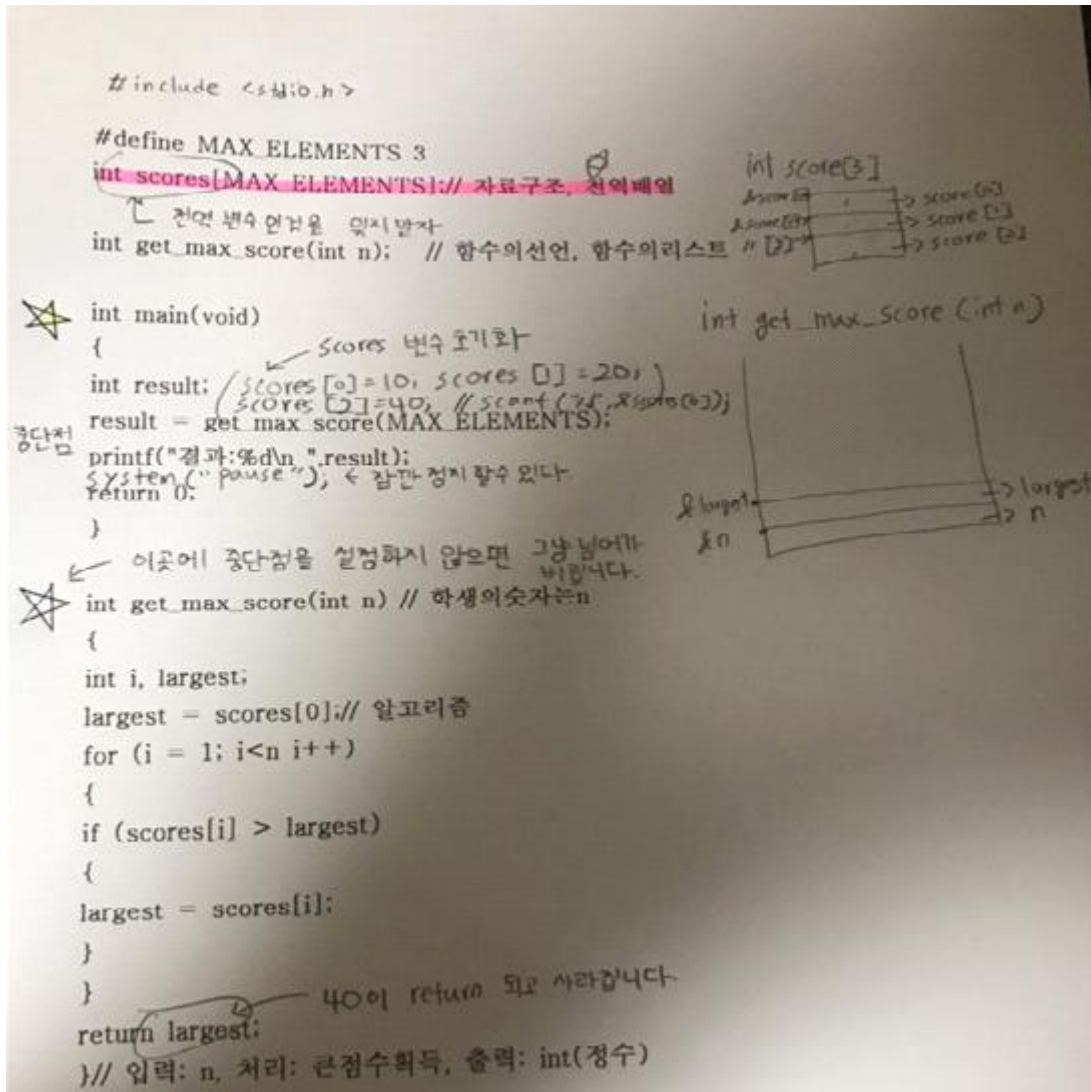 #include <stdio.h>
#define MAX_ELEMENTS 3
int scores[MAX_ELEMENTS];// 자료구조, 전역배열
전역 변수 인것을 잊지말자
int get_max_score(int n); // 함수의선언, 함수의리스트
int score[3]
&score[0] -> score[0]
&score[1] -> score[1]
" [2] -> score [2]
int main(void)
{
scores 변수 초기화
int result; scores[0]=10; scores[1]=20;
scores[2]=40; //scanf(
result = get_max_score(MAX_ELEMENTS);
중단점
printf("결과:%d\n ",result);
system("pause"); ← 잠깐 정지 할수 있다.
return 0;
}
이곳에 중단점을 설정하지 않으면 그냥 넘어가
버립니다.
int get_max_score (int n)
&largest -> largest
&n -> n
int get_max_score(int n) // 학생의숫자는n
{
int i, largest;
largest = scores[0];// 알고리즘
for (i = 1; i<n i++)
{
if (scores[i] > largest)
{
largest = scores[i];
}
}
40이 return 되고 사라집니다.
return largest;
}// 입력: n, 처리: 큰점수획득, 출력: int(정수)